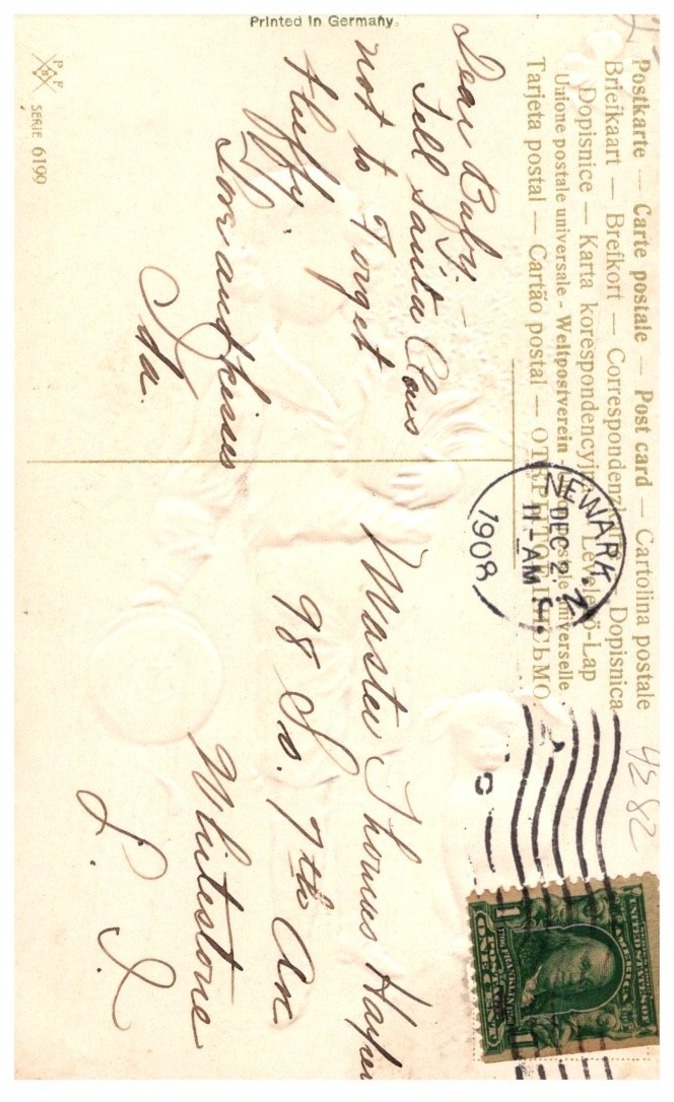 Printed in Germany.
Postkarte — Carte postale — Post card — Cartolina postale
Briefkaart — Brefkort — Correspondenzkarte — Dopisnica
Dopisnice — Karta korespondencyjna — Levelező-Lap
Unione postale universale - Weltpostverein - Union postale universelle
Tarjeta postal — Cartão postal — ОТКРЫТОЕ ПИСЬМО
PAF
SERIE 6199
NEWARK, N.J.
DEC 2
11-AM
1908
4282
UNITED STATES OF AMERICA
1 ONE CENT 1
Dear Baby, —
Tell Santa Claus
not to Forget
Fluffy.
Love and kisses
Ida.
Master Thomas Harper
98 So. 7th Av.
Whitestone
L. I.